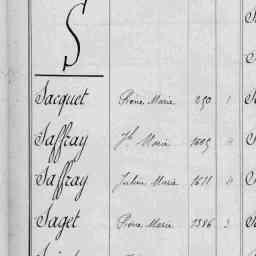 S
Sacquet Pierre Marie 290 1
Saffray Jh Marie 1605 4
Saffray Julien Marie 1611 4
Saget Pierre Marie 1386 3